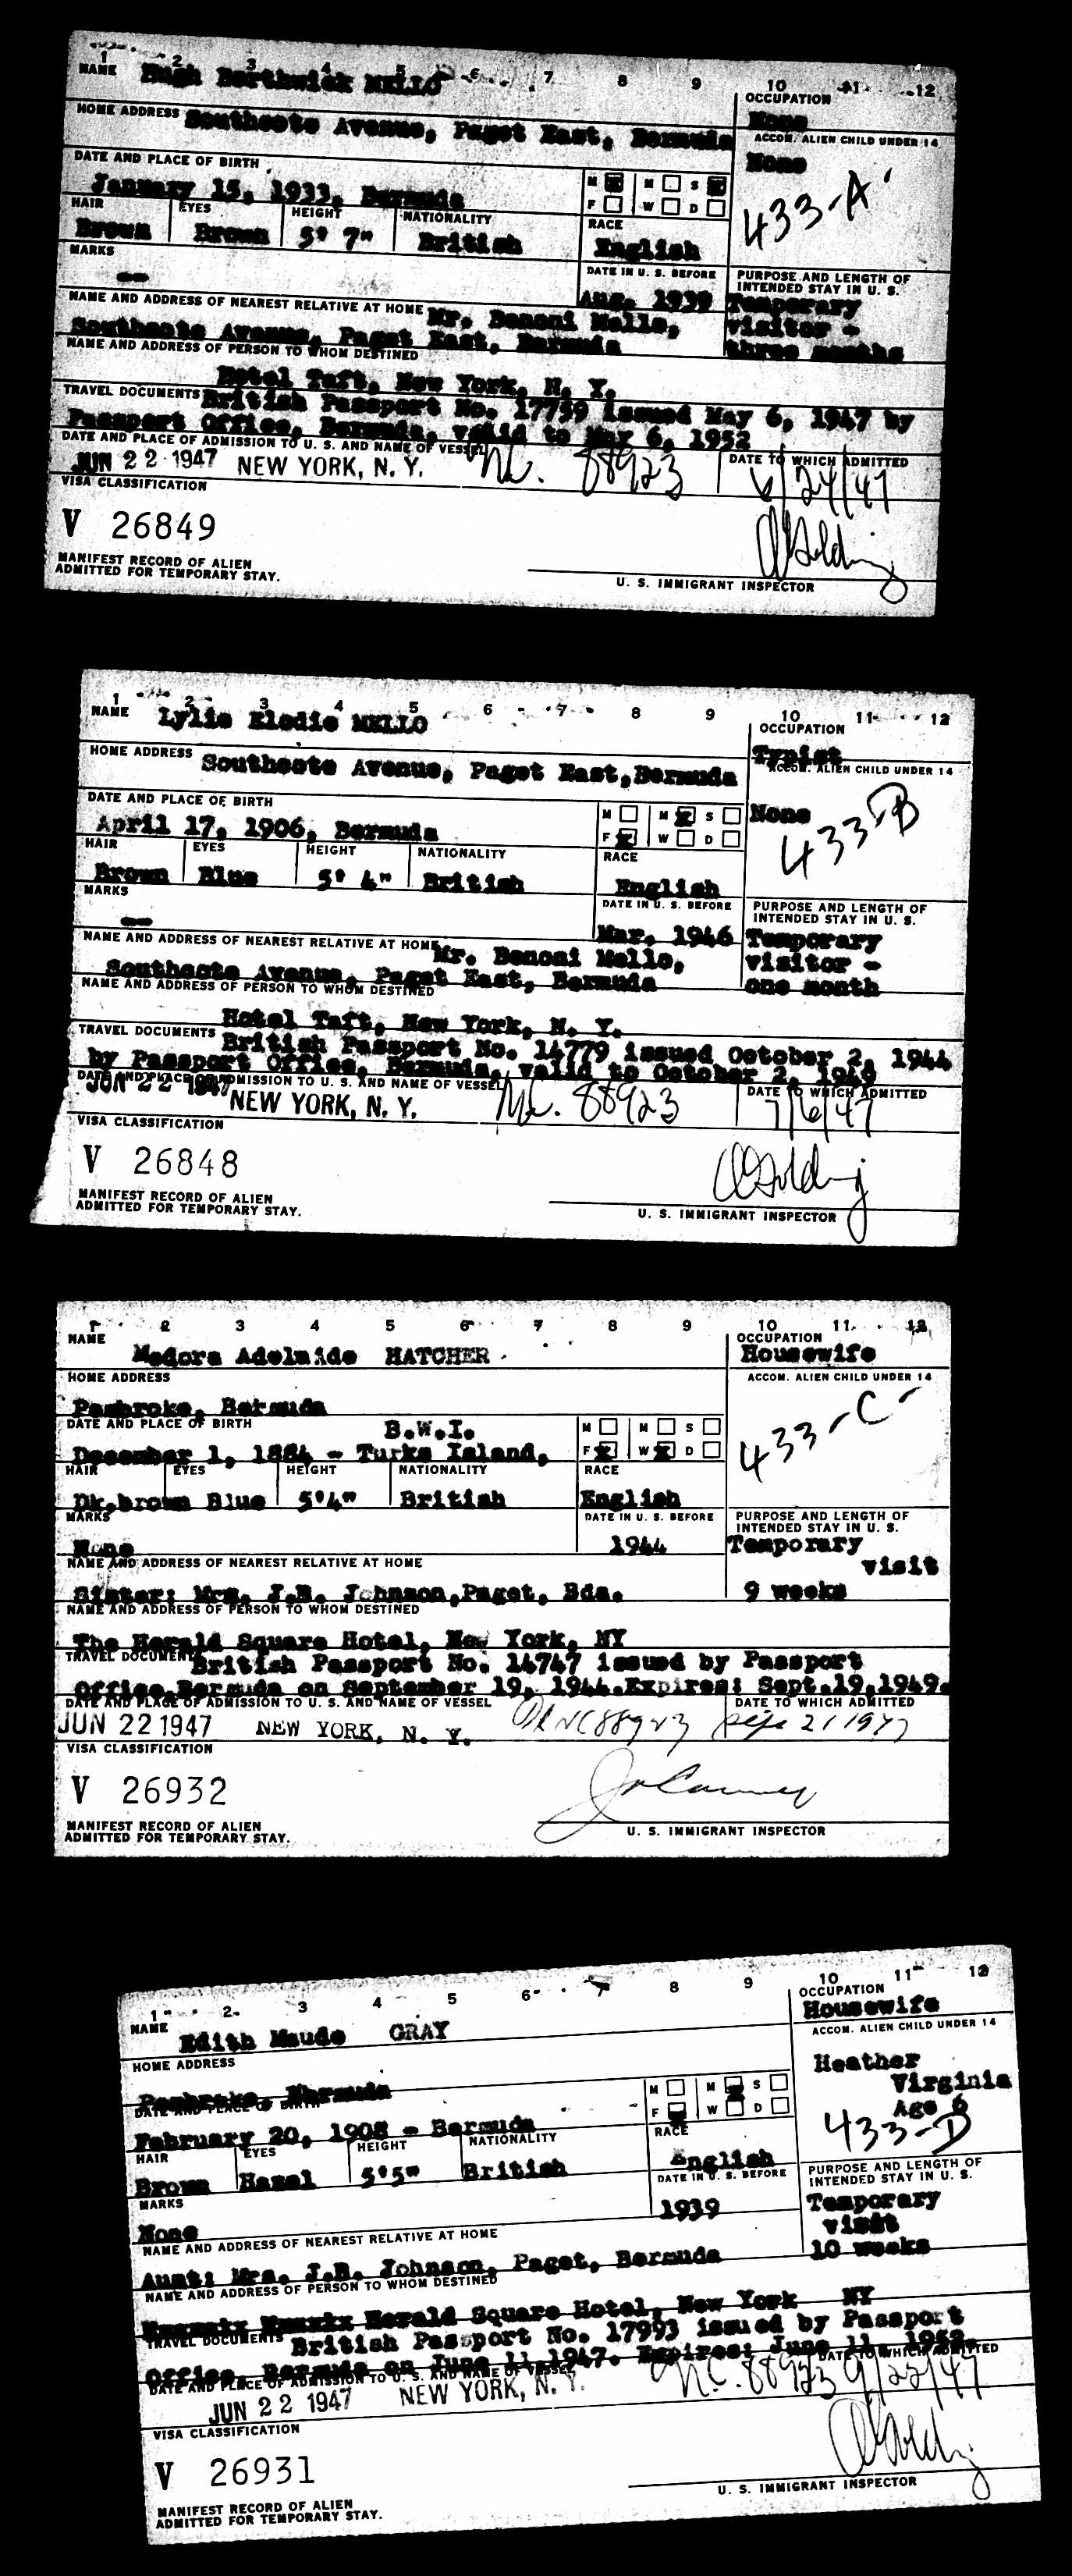 1 2 3 4 5 6 7 8 9 10 11 12
NAME Hugh Borthwick MELLO
OCCUPATION
None
HOME ADDRESS Southcote Avenue, Paget East, Bermuda
ACCOM. ALIEN CHILD UNDER 14
None
433-A
DATE AND PLACE OF BIRTH
January 15, 1933, Bermuda
M M S
F W D
HAIR EYES HEIGHT NATIONALITY RACE
Brown Brown 5' 7" British English
MARKS
--
DATE IN U. S. BEFORE
Aug. 1939
PURPOSE AND LENGTH OF
INTENDED STAY IN U. S.
Temporary
visitor -
three months
NAME AND ADDRESS OF NEAREST RELATIVE AT HOME Mr. Benoni Mello,
Southcote Avenue, Paget East, Bermuda
NAME AND ADDRESS OF PERSON TO WHOM DESTINED
Hotel Taft, New York, N. Y.
TRAVEL DOCUMENTS British Passport No. 17759 issued May 6, 1947 by
Passport Office, Bermuda, valid to May 6, 1952
DATE AND PLACE OF ADMISSION TO U. S. AND NAME OF VESSEL
DATE TO WHICH ADMITTED
JUN 22 1947 NEW YORK, N. Y. NC. 88923 6/24/47
VISA CLASSIFICATION
V 26849
MANIFEST RECORD OF ALIEN
ADMITTED FOR TEMPORARY STAY.
U. S. IMMIGRANT INSPECTOR
1 2 3 4 5 6 7 8 9 10 11 12
NAME Lylie Elodie MELLO
OCCUPATION
Typist
HOME ADDRESS Southcote Avenue, Paget East, Bermuda
ACCOM. ALIEN CHILD UNDER 14
None
433-B
DATE AND PLACE OF BIRTH
April 17, 1906, Bermuda
M M S
F W D
HAIR EYES HEIGHT NATIONALITY RACE
Brown Blue 5' 4" British English
MARKS
--
DATE IN U. S. BEFORE
Mar. 1946
PURPOSE AND LENGTH OF
INTENDED STAY IN U. S.
Temporary
visitor -
one month
NAME AND ADDRESS OF NEAREST RELATIVE AT HOME Mr. Benoni Mello,
Southcote Avenue, Paget East, Bermuda
NAME AND ADDRESS OF PERSON TO WHOM DESTINED
Hotel Taft, New York, N. Y.
TRAVEL DOCUMENTS British Passport No. 14779 issued October 2, 1944
by Passport Office, Bermuda, valid to October 2, 1949
DATE AND PLACE OF ADMISSION TO U. S. AND NAME OF VESSEL
DATE TO WHICH ADMITTED
JUN 22 1947 NEW YORK, N. Y. NC. 88923 7/6/47
VISA CLASSIFICATION
V 26848
MANIFEST RECORD OF ALIEN
ADMITTED FOR TEMPORARY STAY.
U. S. IMMIGRANT INSPECTOR
1 2 3 4 5 6 7 8 9 10 11 12
NAME Medora Adelaide HATCHER
OCCUPATION
Housewife
HOME ADDRESS
ACCOM. ALIEN CHILD UNDER 14
Pembroke, Bermuda
433-C
DATE AND PLACE OF BIRTH B.W.I.
December 1, 1884 - Turks Island,
M M S
F W D
HAIR EYES HEIGHT NATIONALITY RACE
Dk.brown Blue 5'4" British English
MARKS
None
DATE IN U. S. BEFORE
1944
PURPOSE AND LENGTH OF
INTENDED STAY IN U. S.
Temporary
visit
9 weeks
NAME AND ADDRESS OF NEAREST RELATIVE AT HOME
Sister: Mrs. J.B. Johnson, Paget, Bda.
NAME AND ADDRESS OF PERSON TO WHOM DESTINED
The Herald Square Hotel, New York, NY
TRAVEL DOCUMENTS British Passport No. 14747 issued by Passport
Office, Bermuda on September 19, 1944. Expires: Sept.19,1949.
DATE AND PLACE OF ADMISSION TO U. S. AND NAME OF VESSEL
DATE TO WHICH ADMITTED
JUN 22 1947 NEW YORK, N. Y. NC 88923 Sep 21 1947
VISA CLASSIFICATION
V 26932
MANIFEST RECORD OF ALIEN
ADMITTED FOR TEMPORARY STAY.
U. S. IMMIGRANT INSPECTOR
1 2 3 4 5 6 7 8 9 10 11 12
NAME Edith Maude GRAY
OCCUPATION
Housewife
HOME ADDRESS
ACCOM. ALIEN CHILD UNDER 14
Pembroke, Bermuda
Heather
Virginia
Age 6
433-D
DATE AND PLACE OF BIRTH
February 20, 1908 - Bermuda
M M S
F W D
HAIR EYES HEIGHT NATIONALITY RACE
Brown Hazel 5'5" British English
MARKS
None
DATE IN U. S. BEFORE
1939
PURPOSE AND LENGTH OF
INTENDED STAY IN U. S.
Temporary
visit
10 weeks
NAME AND ADDRESS OF NEAREST RELATIVE AT HOME
Aunt: Mrs. J.B. Johnson, Paget, Bermuda
NAME AND ADDRESS OF PERSON TO WHOM DESTINED
Herald Square Hotel, New York NY
TRAVEL DOCUMENTS British Passport No. 17993 issued by Passport
Office, Bermuda on June 11,1947. Expires: June 11, 1952.
DATE AND PLACE OF ADMISSION TO U. S. AND NAME OF VESSEL
DATE TO WHICH ADMITTED
JUN 22 1947 NEW YORK, N. Y. NC. 88923 9/22/47
VISA CLASSIFICATION
V 26931
MANIFEST RECORD OF ALIEN
ADMITTED FOR TEMPORARY STAY.
U. S. IMMIGRANT INSPECTOR